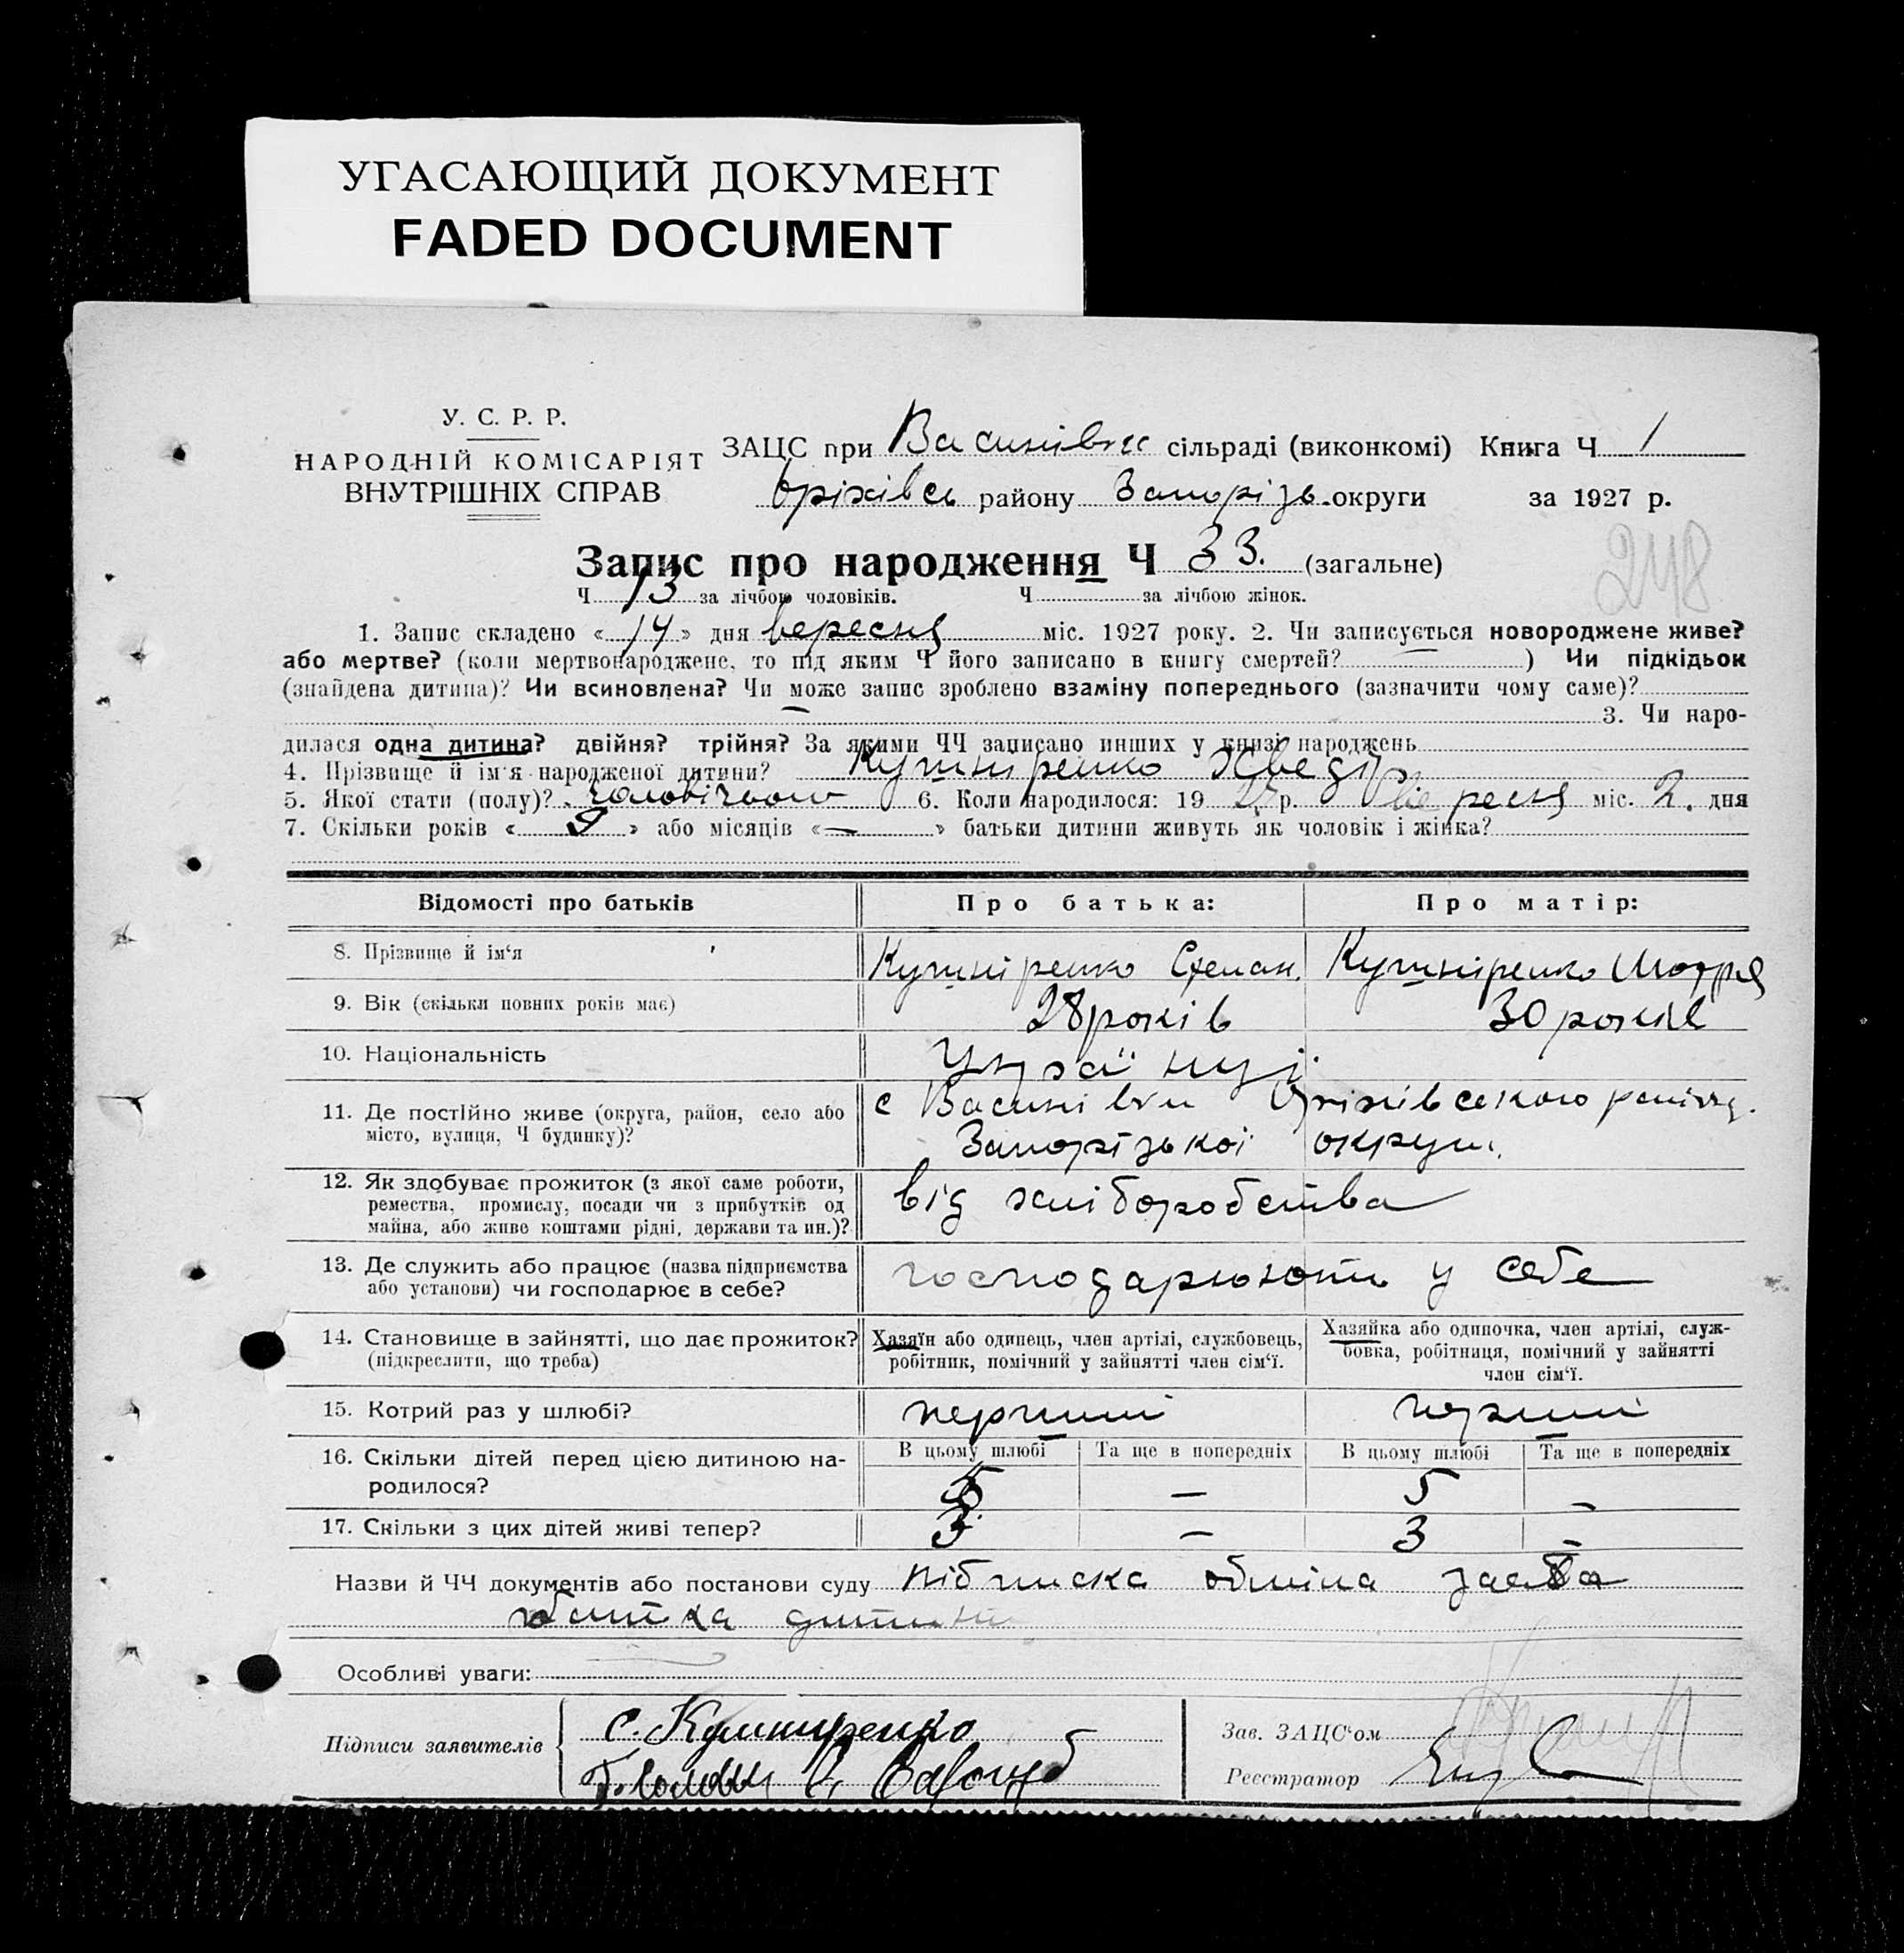 УГАСАЮЩИЙ ДОКУМЕНТ
FADED DOCUMENT
У. С. Р. Р.
НАРОДНІЙ КОМІСАРІЯТ
ВНУТРІШНІХ СПРАВ
ЗАЦС при Васинівка сільраді (виконкомі) Книга Ч 1
Оріхівсь району Запорізь. округи за 1927 р.
248
Запис про народження Ч 33. (загальне)
Ч 13 за лічбою чоловіків. Ч за лічбою жінок.
1. Запис складено « 14 » дня вересня міс. 1927 року. 2. Чи записується новороджене живе?
або мертве? (коли мертвонароджене, то під яким Ч його записано в книгу смертей? — ) Чи підкідьок
(знайдена дитина)? Чи всиновлена? Чи може запис зроблено взаміну попереднього (зазначити чому саме)?
— 3. Чи наро-
дилася одна дитина? двійня? трійня? За якими ЧЧ записано инших у книзі народжень
4. Прізвище й ім'я народженої дитини? Кушніренко Хведір
5. Якої стати (полу)? чоловічьої 6. Коли народилося: 19 27 р. вересня міс. 2. дня
7. Скільки років « 9 » або місяців « — » батьки дитини живуть як чоловік і жінка?
Відомості про батьків Про батька: Про матір:
8. Прізвище й ім'я Кушніренко Степан. Кушніренко Мотря
9. Вік (скільки повних років має) 28 років 30 років
10. Національність Українці
11. Де постійно живе (округа, район, село або с Васинівки Оріхівського району.
місто, вулиця, Ч будинку)? Запорізької округи.
12. Як здобуває прожиток (з якої саме роботи,
ремества, промислу, посади чи з прибутків од від хліборобства
майна, або живе коштами рідні, держави та ин.)?
13. Де служить або працює (назва підприємства господарюють у себе
або установи) чи господарює в себе?
14. Становище в зайнятті, що дає прожиток? Хазяїн або одинець, член артілі, службовець, Хазяйка або одиночка, член артілі, служ-
(підкреслити, що треба) робітник, помічний у зайнятті член сім'ї. бовка, робітниця, помічний у зайнятті
член сім'ї.
15. Котрий раз у шлюбі? перший перший
16. Скільки дітей перед цією дитиною на- В цьому шлюбі Та ще в попередніх В цьому шлюбі Та ще в попередніх
родилося? 5 — 5 —
17. Скільки з цих дітей живі тепер? 3 — 3 —
Назви й ЧЧ документів або постанови суду підписка заява
батька дитини
Особливі уваги:
Підписи заявителів С. Кушниренко
Зав. ЗАЦС'ом
Реєстратор